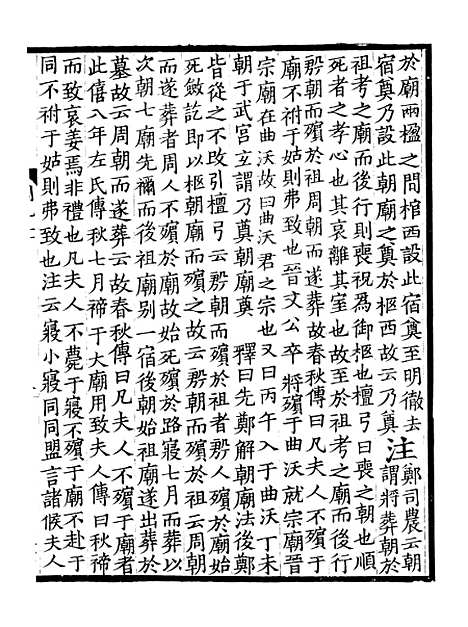 於廟兩楹之間棺西設此宿奠至明徹去
宿奠乃設此朝廟之奠於柩西故云乃奠
注
鄭司農云朝
謂將葬朝於
祖考之廟而後行則喪祝為御柩也檀弓曰喪之朝也順
死者之孝心也其哀離其室也故至於祖考之廟而後行
殷朝而殯於祖周朝而遂葬故春秋傳曰凡夫人不殯于
廟不祔于姑則弗致也晉文公卒將殯于曲沃就宗廟晉
宗廟在曲沃故曰曲沃君之宗也又曰丙午入于曲沃丁未
朝于武宮玄謂乃奠朝廟奠　釋曰先鄭解朝廟法後鄭
皆從之不改引檀弓云殷朝而殯於祖者殷人殯於廟始
死斂訖即以柩朝廟而殯之故云殷朝而殯於祖云周朝
而遂葬者周人不殯於廟故始死殯於路寢七月而葬以
次朝七廟先禰而後祖廟別一宿後朝始祖廟遂出葬於
墓故云周朝而遂葬云故春秋傳曰凡夫人不殯于廟者
此僖八年左氏傳秋七月禘于大廟用致夫人傳曰秋禘
而致哀姜焉非禮也凡夫人不薨于寢不殯于廟不赴于
同不祔于姑則弗致也注云寢小寢同同盟言諸侯夫人